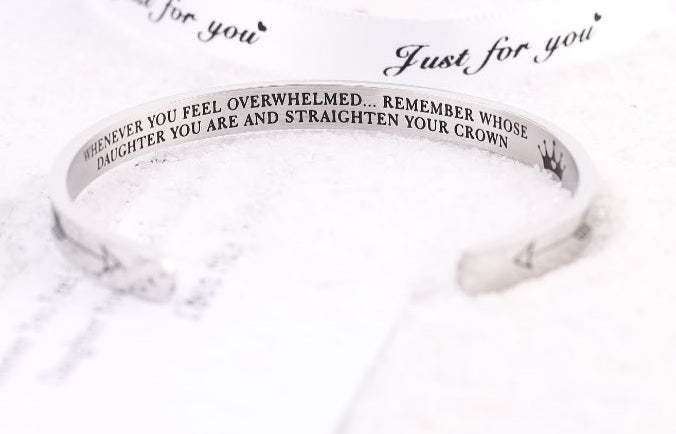 Just for you
Just for you
WHENEVER YOU FEEL OVERWHELMED... REMEMBER WHOSE
DAUGHTER YOU ARE AND STRAIGHTEN YOUR CROWN